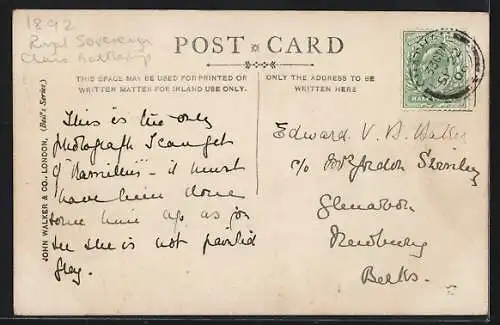 1892
Royal Sovereign
Class Battleship
POST CARD
THIS SPACE MAY BE USED FOR PRINTED OR
WRITTEN MATTER FOR INLAND USE ONLY.
ONLY THE ADDRESS TO BE
WRITTEN HERE
JOHN WALKER & CO., LONDON, (Bell's Series)
This is the only
photograph I can get
of "Ramillies" – it must
have been done
some time ago as for
she is not painted
grey.
Edward V. B.
c/o Gordon
Newbury
Berks.